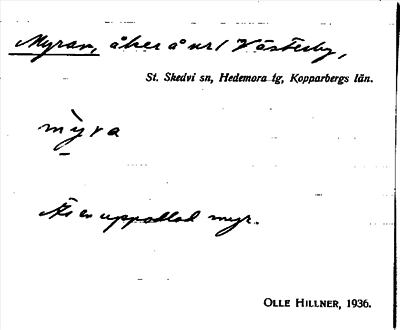 Myran, åker å nr 1 Västerby,
St. Skedvi sn, Hedemora tg, Kopparbergs län.
mỳra
Är en uppodlad myr.
OLLE HILLNER, 1936.